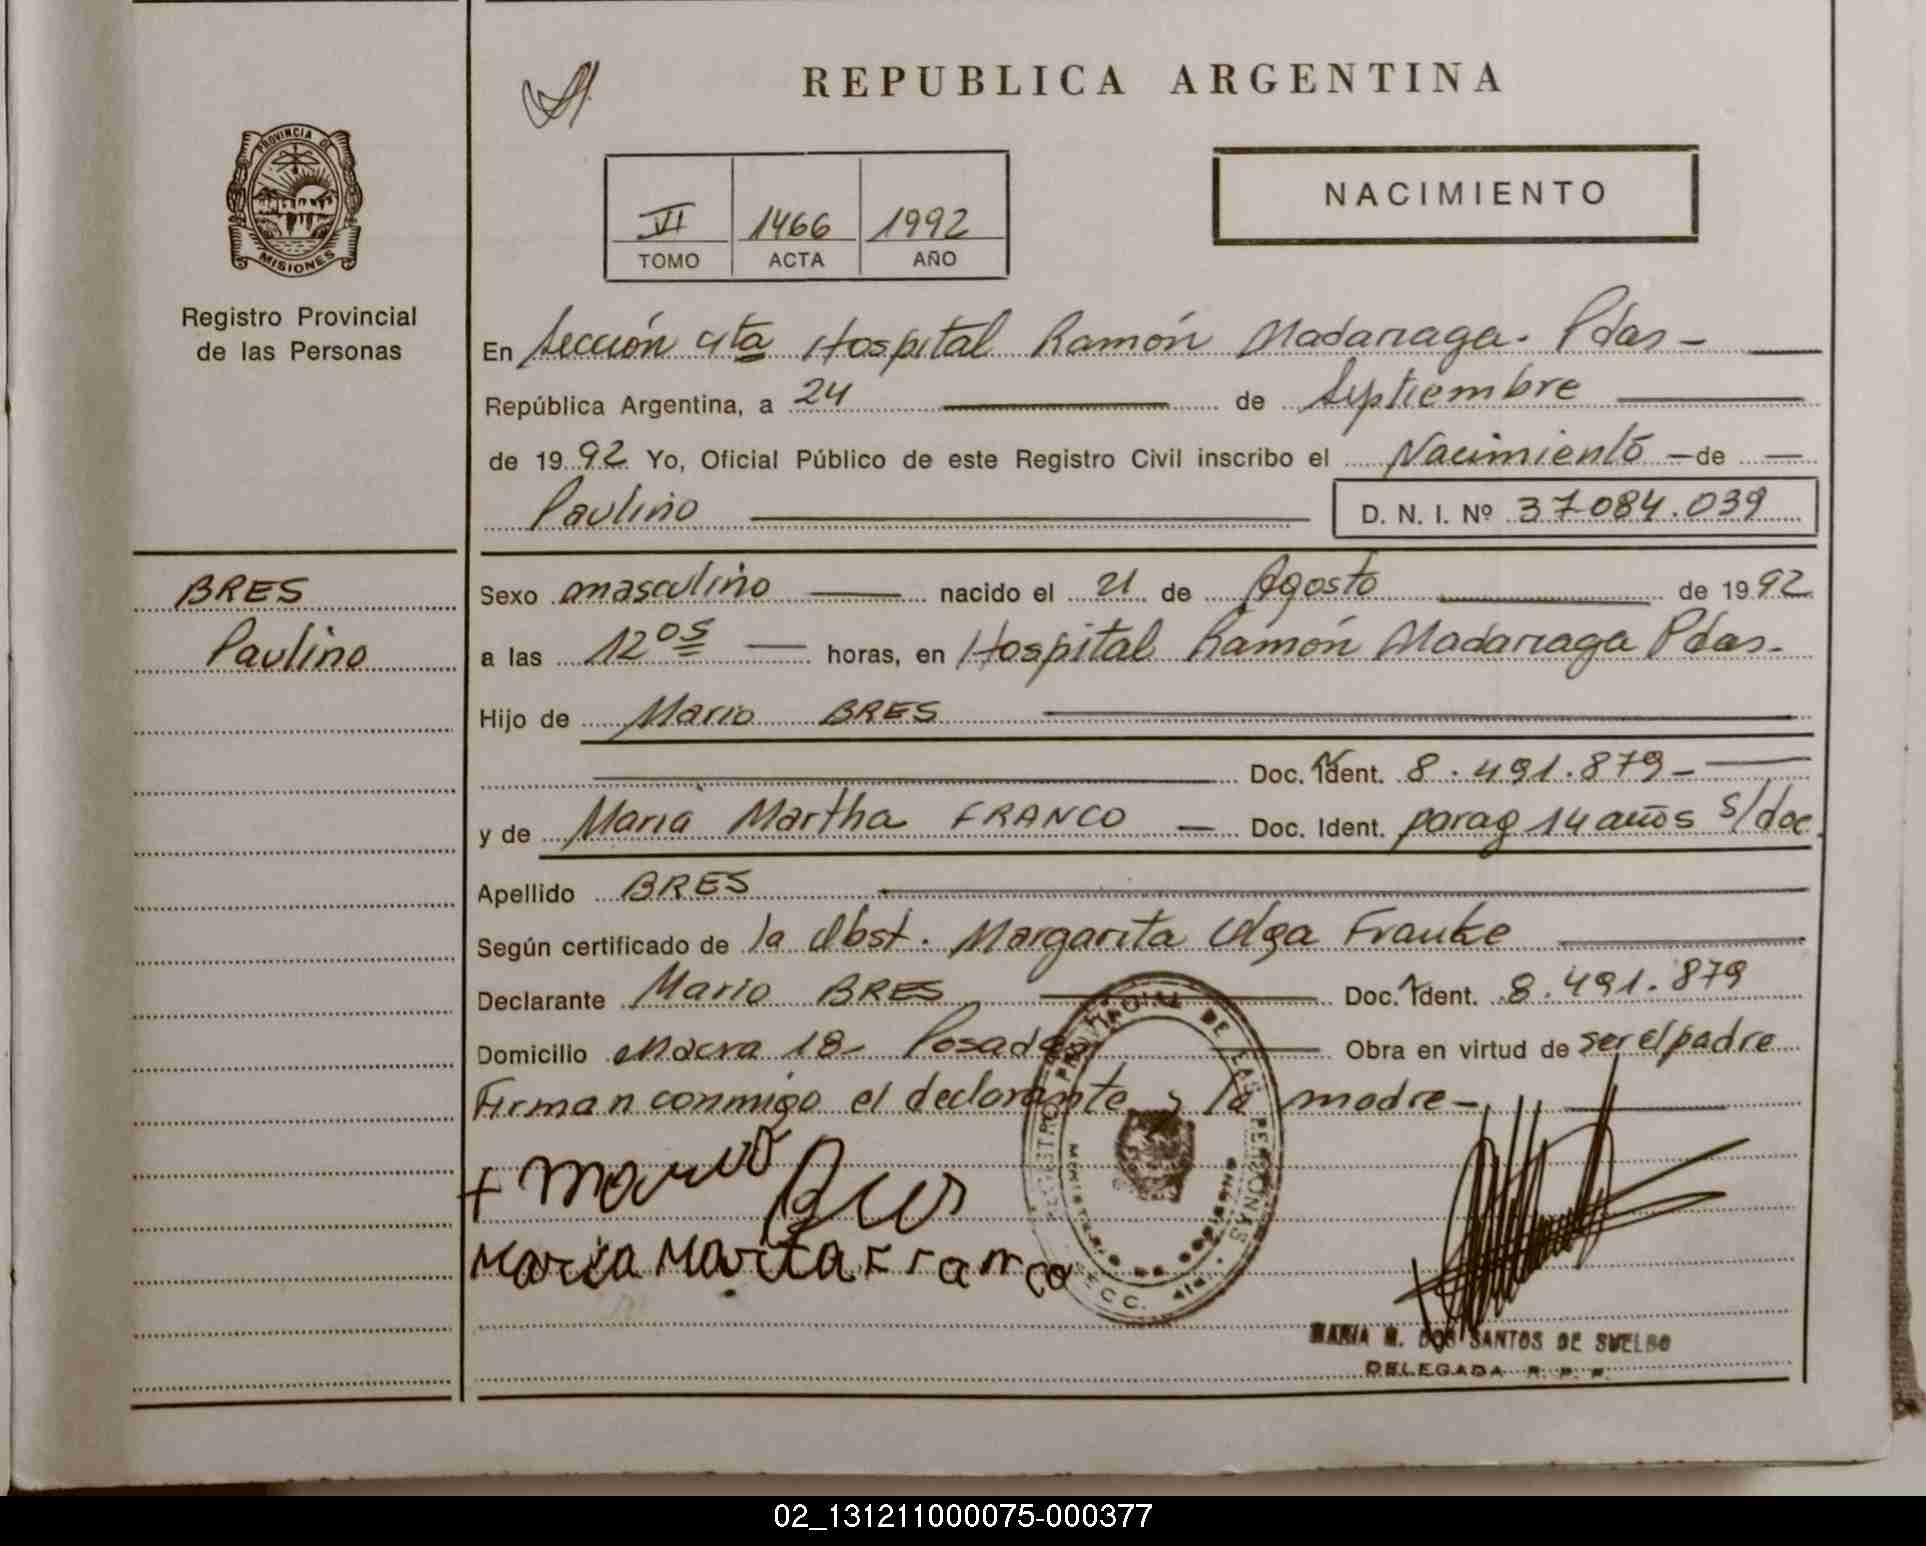 REPUBLICA ARGENTINA
NACIMIENTO
VI 1466 1992
TOMO ACTA AÑO
PROVINCIA DE
MISIONES
Registro Provincial
de las Personas
En Sección 4ta Hospital Ramón Madariaga. Pdas -
República Argentina, a 24 de Septiembre
de 1992 Yo, Oficial Público de este Registro Civil inscribo el Nacimiento - de -
Paulino D. N. I. Nº 37.084.039
BRES
Paulino
Sexo masculino nacido el 21 de Agosto de 1992
a las 12 05 horas, en Hospital Ramón Madariaga Pdas.
Hijo de Mario BRES
Doc. Ident. 8.491.879 -
y de Maria Martha FRANCO - Doc. Ident. parag 14 años s/doc.
Apellido BRES
Según certificado de la Obst. Margarita Olga Franke
Declarante Mario BRES Doc. Ident. 8.491.879
Domicilio Macra 18 Posadas Obra en virtud de ser el padre
Firman conmigo el declarante y la madre -
+ Mario Bres
Maria Marta Franco
REGISTRO PROVINCIAL DE LAS PERSONAS
MINISTERIO DE GOBIERNO
SECC. 4ta
MARIA M. DOS SANTOS DE SUELDO
DELEGADA R. P. P.
02_131211000075-000377